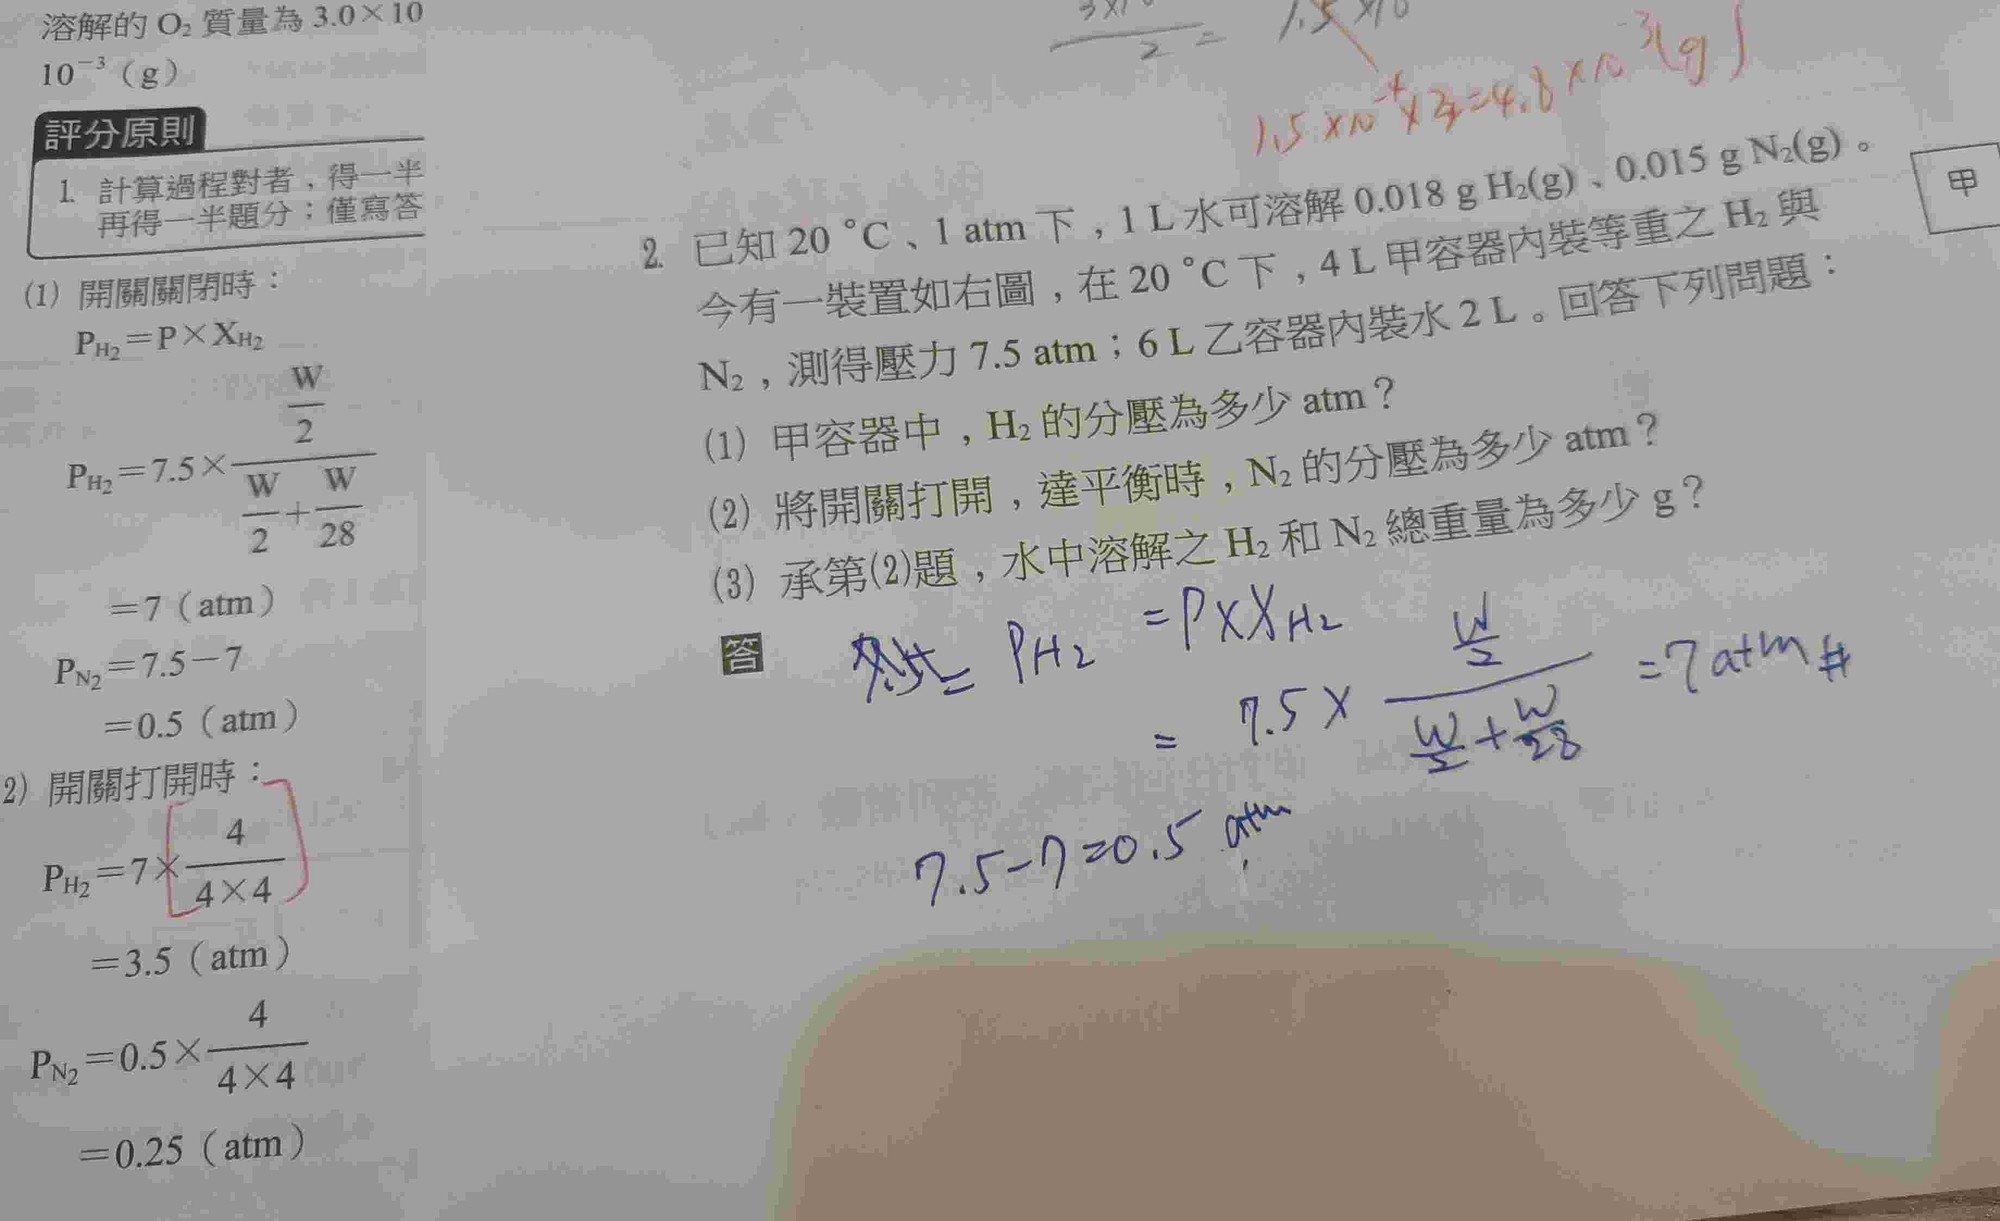 溶解的 O₂ 質量為 3.0×10
10⁻³（g）
評分原則
1. 計算過程對者，得一半
再得一半題分；僅寫答
(1) 開關關閉時：
P_H₂＝P×X_H₂
P_H₂＝7.5× (W/2)/(W/2＋W/28)
＝7（atm）
P_N₂＝7.5－7
＝0.5（atm）
2) 開關打開時：
P_H₂＝7× 4/(4×4)
＝3.5（atm）
P_N₂＝0.5× 4/(4×4)
＝0.25（atm）
2 =
2. 已知 20 °C、1 atm 下，1 L 水可溶解 0.018 g H₂(g)、0.015 g N₂(g)。
今有一裝置如右圖，在 20 °C 下，4 L 甲容器內裝等重之 H₂ 與
N₂，測得壓力 7.5 atm；6 L 乙容器內裝水 2 L。回答下列問題：
(1) 甲容器中，H₂ 的分壓為多少 atm？
(2) 將開關打開，達平衡時，N₂ 的分壓為多少 atm？
(3) 承第(2)題，水中溶解之 H₂ 和 N₂ 總重量為多少 g？
甲
答
P_H₂ = P×X_H₂
= 7.5× (W/2)/(W/2+W/28) =7 atm #
7.5-7=0.5 atm